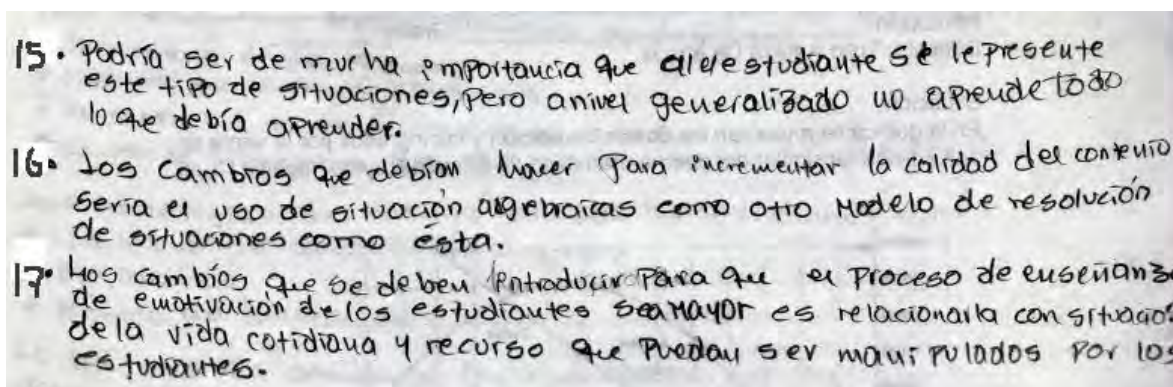 15. Podría ser de mucha importancia que al estudiante se le presente
este tipo de situaciones, pero a nivel generalizado no aprende todo
lo que debía aprender.
16. Los cambios que debían hacer para incrementar la calidad del contenio
sería el uso de situación algebraicas como otro modelo de resolución
de situaciones como ésta.
17. Los cambios que se deben introducir para que el proceso de enseñanza
de emotivación de los estudiantes sea mayor es relacionarla con situacio
de la vida cotidiana y recurso que puedan ser manipulados por los
estudiantes.